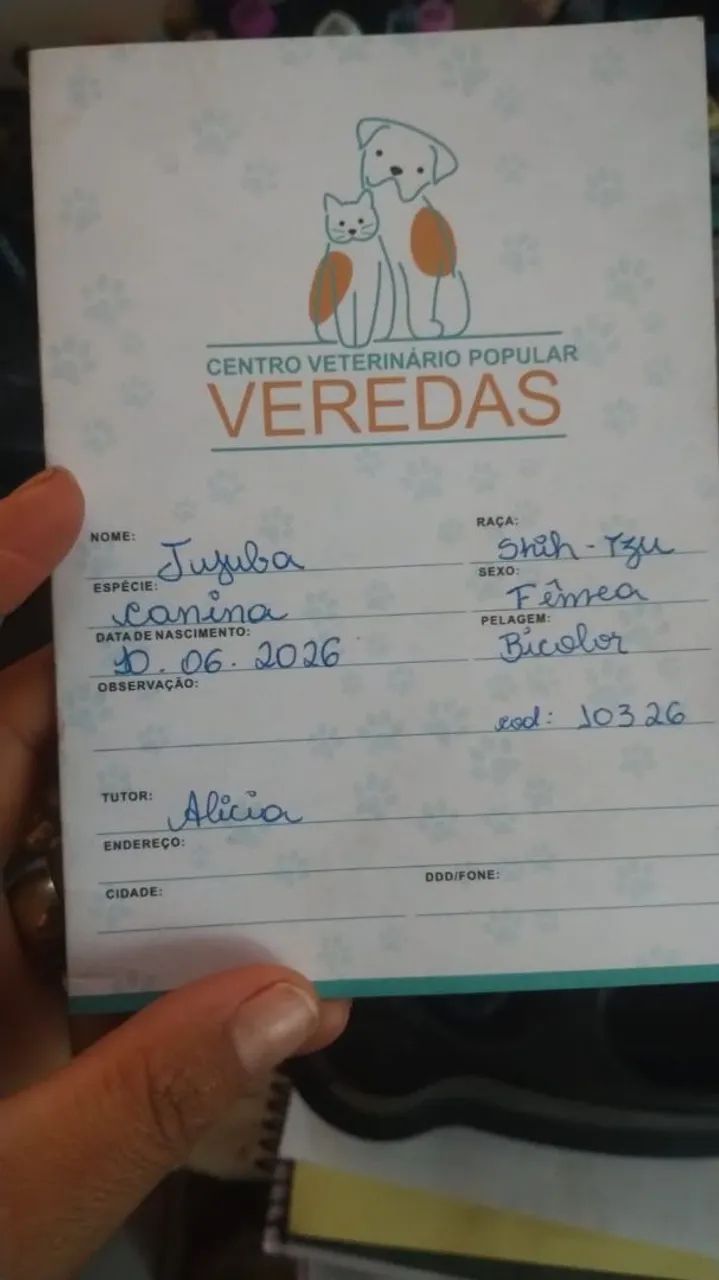 CENTRO VETERINÁRIO POPULAR
VEREDAS
NOME: Jujuba
RAÇA: Shih-Tzu
ESPÉCIE: canina
SEXO: Fêmea
DATA DE NASCIMENTO: 10.06.2026
PELAGEM: Bicolor
OBSERVAÇÃO:
cod: 10326
TUTOR: Alicia
ENDEREÇO:
CIDADE:
DDD/FONE: